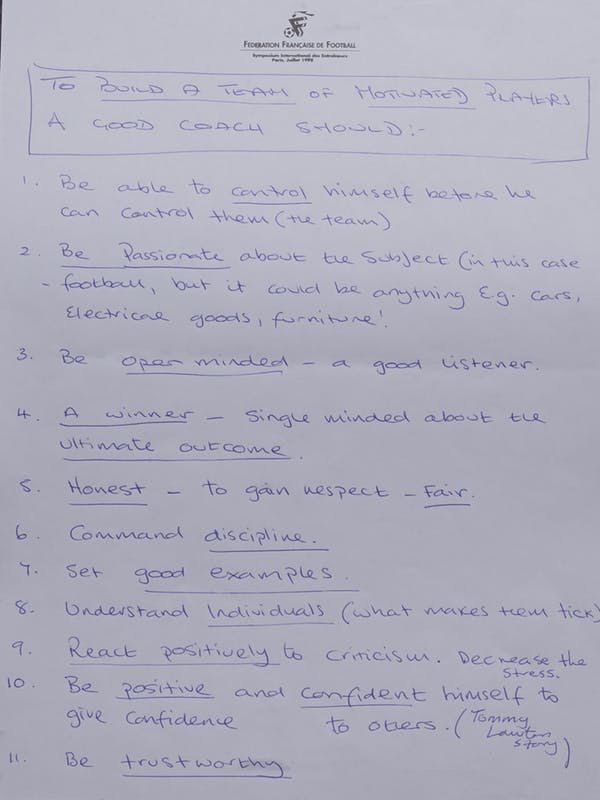 FEDERATION FRANÇAISE DE FOOTBALL
Symposium International des Entraîneurs
Paris, Juillet 1998
TO BUILD A TEAM OF MOTIVATED PLAYERS
A GOOD COACH SHOULD:-
1. Be able to control himself before he
can control them (the team)
2. Be Passionate about the subject (in this case
- football, but it could be anything E.g. cars,
Electrical goods, furniture!
3. Be open minded - a good listener.
4. A winner - single minded about the
ultimate outcome.
5. Honest - to gain respect - Fair.
6. Command discipline.
7. Set good examples.
8. Understand Individuals (what makes them tick)
9. React positively to criticism. Decrease the
stress.
10. Be positive and confident himself to
give confidence to others. (Tommy
Lawton
story)
11. Be trustworthy